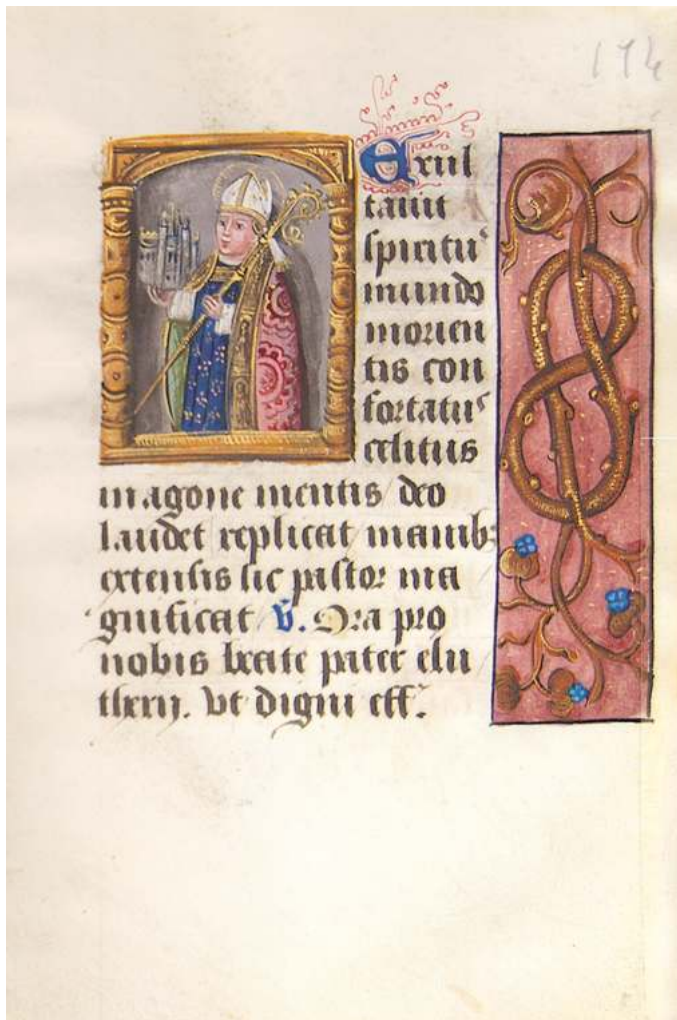 194
Exul
tauit
spiritus
mundo
morien
tis con
fortatus
celitus
in agone mentis deo
laudet replicat manib;
extensis sic pastor ma
gnificat. v̄. Ora pro
nobis beate pater eleu
therij. Vt digni eff.